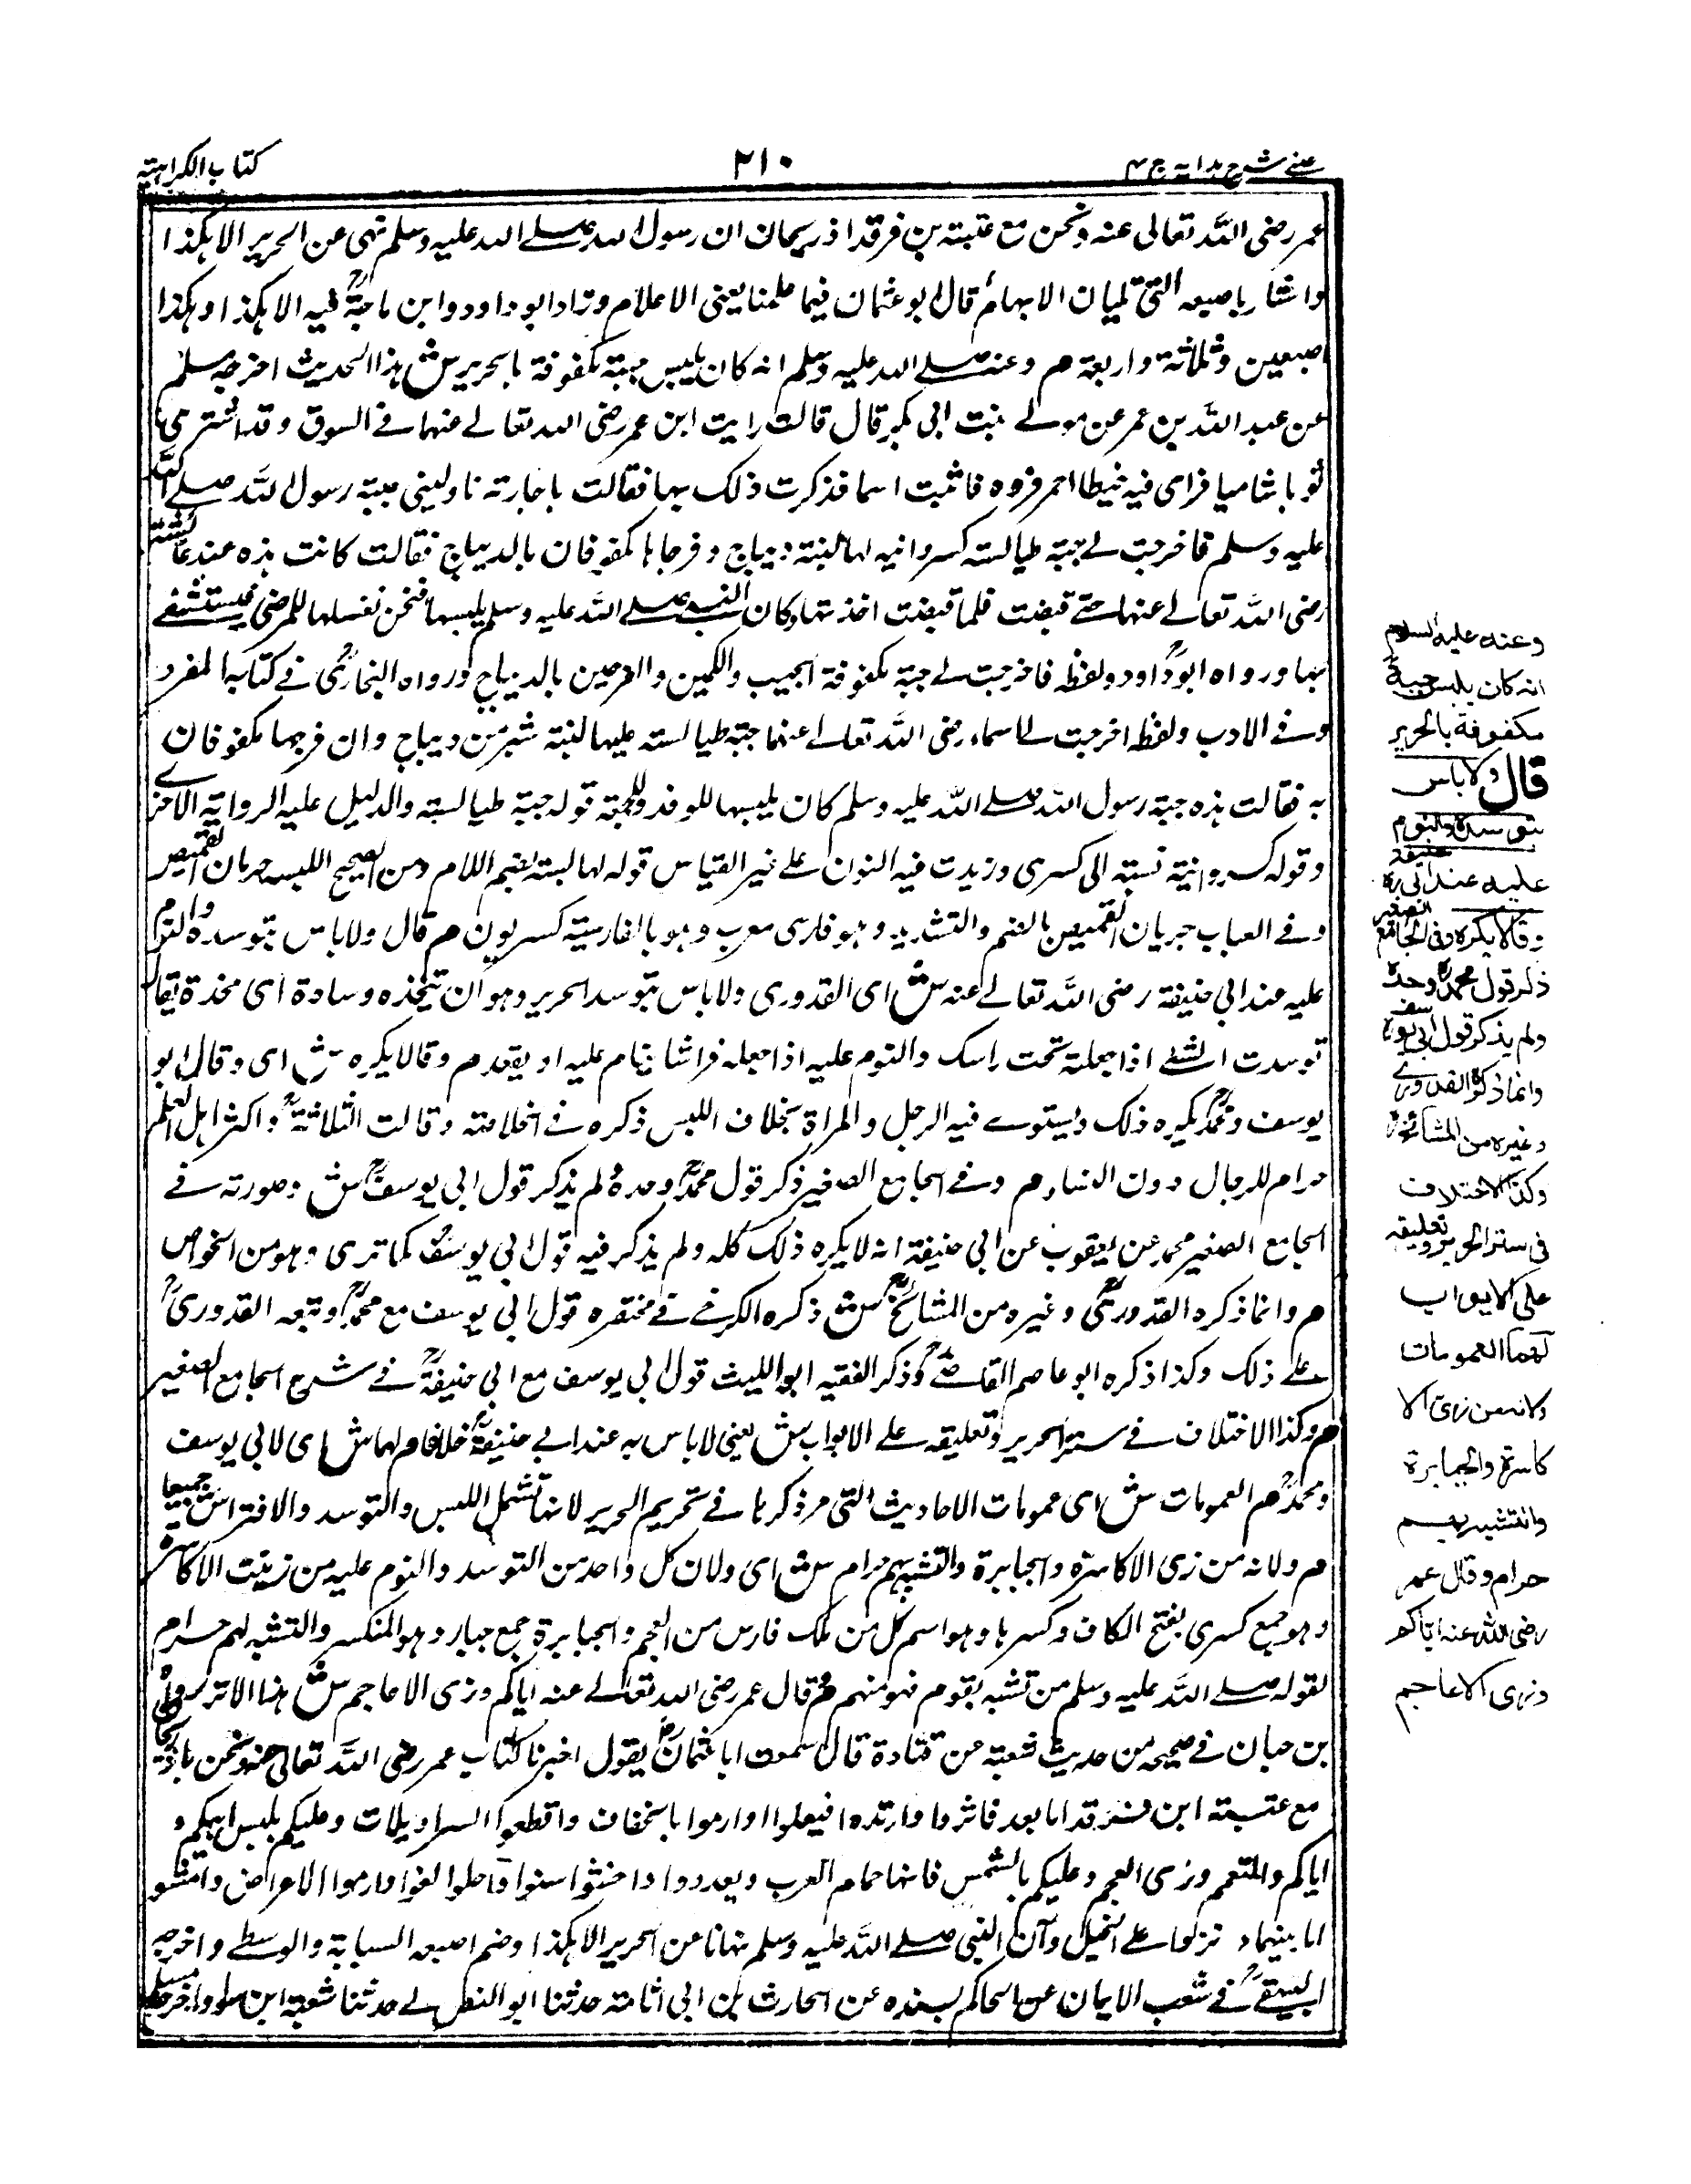 عینے شرح ہدایہ ج ۴
۲۱۰
کتاب الکراہیة
عمر رضی اللہ تعالی عنہ ونحن مع عتبة بن فرقد اذربیجان ان رسول اللہ صلے اللہ علیہ وسلم نہی عن الحریر الا ہکذا
واشار باصبعہ التی تلیان الابہام قال ابو عثمان فیما علمنا یعنی الاعلام وزاد ابو داود وابن ماجة فیہ الا ہکذا وہکذا
اصبعین وثلاثة واربعة م وعنہ صلے اللہ علیہ وسلم انہ کان یلبس جبة مکفوفة بالحریر ش ہذا الحدیث اخرجہ مسلم
عن عبد اللہ بن عمر عن مولے بنت ابی بکر قال قالت رایت ابن عمر رضی اللہ تعالے عنہما فے السوق وقد اشتری
ثوبا شامیا فرای فیہ خیطا احمر فردہ فاتیت اسما فذکرت ذلک لہا فقالت یا جاریة ناولینی جبة رسول اللہ صلے اللہ
علیہ وسلم فاخرجت لے جبة طیالسة کسروانیہ لہا لبنة دیباج وفرجاہا مکفوفان بالدیباج فقالت کانت ہذہ عند عائشة
رضی اللہ تعالے عنہا حتے قبضت فلما قبضت اخذتہا وکان النبی صلے اللہ علیہ وسلم یلبسہا فنحن نغسلہا للمرضی فیستشفے
بہا ورواہ ابو داود ولفظہ فاخرجت لے جبة مکفوفة الجیب والکمین والفرجین بالدیباج ورواہ البخاری فے کتابہ المفرد
وفے الادب ولفظہ اخرجت لے اسماء رضی اللہ تعالے عنہا جبة طیالسة علیہا لبنة شبر من دیباج وان فرجہا مکفوفان
بہ فقالت ہذہ جبة رسول اللہ صلے اللہ علیہ وسلم کان یلبسہا للوفد وللجمعة قولہ جبة طیالسة والدلیل علیہ الروایة الاخرے
وقولہ کسروانیة نسبة الی کسری وزیدت فیہ النون علے غیر القیاس قولہ لہا لبنة بضم اللام ومن الصحیح اللبنة جربان القمیص
وفے العباب جربان القمیص بالضم والتشدید وہو فارسی معرب وہو بالفارسیة کسریون م قال ولاباس بتوسدہ والنوم
علیہ عند ابی حنیفة رضی اللہ تعالے عنہ ش ای القدوری ولاباس بتوسد الحریر وہو ان یتخذہ وسادة ای مخدة یقال
توسدت الشئ اذا جعلتہ تحت راسک والنوم علیہ اذا جعلہ فراشا ینام علیہ او یقعد م وقالا یکرہ ش ای وقال ابو
یوسف ومحمد یکرہ ذلک ویستوے فیہ الرجل والمراة بخلاف اللبس ذکرہ فے الخلاصة وقالت الثلاثة واکثر اہل العلم
حرام للرجال دون النساء م وفے الجامع الصغیر ذکر قول محمد وحدہ ولم یذکر قول ابی یوسف ش وصورتہ فے
الجامع الصغیر محمد عن یعقوب عن ابی حنیفة انہ لایکرہ ذلک کلہ ولم یذکر فیہ قول ابی یوسف کما تری وہو من الخواص
م وانما ذکرہ القدوری وغیرہ من المشائخ ش ذکرہ الکرخے فے مختصرہ قول ابی یوسف مع محمد وتبعہ القدوری
علے ذلک وکذا ذکرہ ابو عاصم القاضے وذکر الفقیہ ابو اللیث قول ابی یوسف مع ابی حنیفة فے شرح الجامع الصغیر
م وکذا الاختلاف فے ستر الحریر وتعلیقہ علے الابواب ش یعنی لاباس بہ عند ابے حنیفة خلافا م لہما ش ای لابی یوسف
ومحمد م العمومات ش ای عمومات الاحادیث التی مر ذکرہا فے تحریم الحریر لانہا تشمل اللبس والتوسد والافتراش جمیعا
م ولانہ من زی الاکاسرة والجبابرة والتشبہ بہم حرام ش ای ولان کل واحد من التوسد والنوم علیہ من زینت الاکاسرة
وہو جمع کسری بفتح الکاف وکسرہا وہو اسم کل من ملک فارس من العجم والجبابرة جمع جبار وہو المتکبر والتشبہ لہم حرام
لقولہ صلے اللہ علیہ وسلم من تشبہ بقوم فہو منہم م وقال عمر رضی اللہ تعالے عنہ ایاکم وزی الاعاجم ش ہذا الاثر رواہ
بن حبان فے صحیحہ من حدیث شعبة عن قتادة قال سمعت ابا عثمان یقول اخبرنا کتاب عمر رضی اللہ تعالی عنہ ونحن باذربیجان
مع عتبة ابن فرقد اما بعد فاتزروا وارتدوا وانتعلوا وارموا بالخفاف واقطعوا السراویلات وعلیکم بلباس ابیکم و
ایاکم والتنعم وزی العجم وعلیکم بالشمس فانہا حمام العرب وتمعددوا واخشوشنوا واخلولقوا وارموا الاغراض وامشو
اما بینہما ونزلوا علے الخیل وان النبی صلے اللہ علیہ وسلم نہانا عن الحریر الا ہکذا وضم اصبعہ السبابة والوسطے واخرجہ
البیہقے فے شعب الایمان عن الحاکم بسندہ عن الحارث بن ابی اثامة حدثنا ابو النضر لے حدثنا شعبة ابن سوا واخرجہ مسلم
وعنہ علیہ السلام
انہ کان یلبس جبة
مکفوفة بالحریر
قال ولاباس
بتوسدہ والنوم
علیہ عند ابی حنیفة رہ
وقالا یکرہ وفی الجامع الصغیر
ذکر قول محمد رہ وحدہ
ولم یذکر قول ابی یوسف رہ
وانما ذکرہ القدوری
وغیرہ من المشائخ
وکذا الاختلاف
فی ستر الحریر وتعلیقہ
علی الابواب
لهما العمومات
ولانہ من زی الا
کاسرة والجبابرة
والتشبہ بهم
حرام وقال عمر
رضی اللہ عنہ ایاکم
وزی الاعاجم